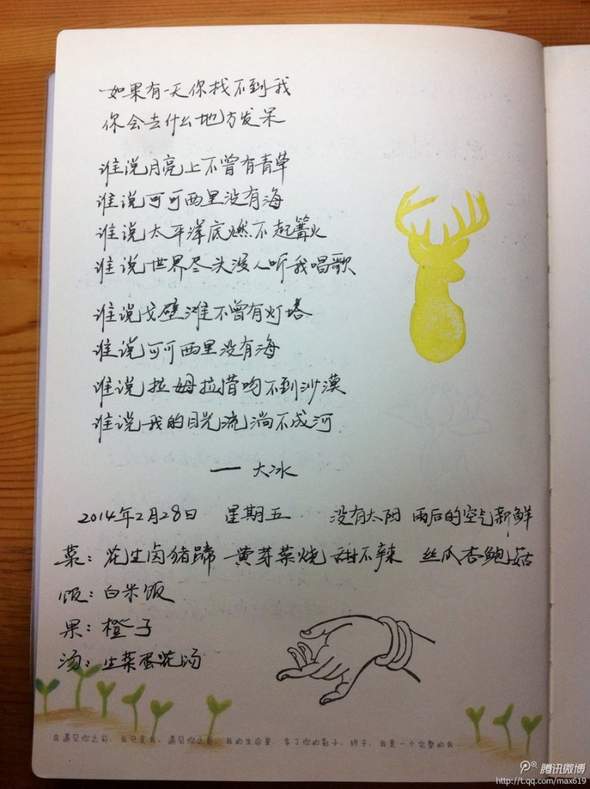 如果有一天你找不到我
你会去什么地方发呆
谁说月亮上不曾有青草
谁说可可西里没有海
谁说太平洋底燃不起篝火
谁说世界尽头没人听我唱歌
谁说戈壁滩不曾有灯塔
谁说可可西里没有海
谁说拉姆拉措吻不到沙漠
谁说我的目光流淌不成河
—— 大冰
2014年2月28日 星期五 没有太阳 雨后的空气新鲜
菜：花生卤猪蹄 黄芽菜烧甜不辣 丝瓜杏鲍菇
饭：白米饭
果：橙子
汤：生菜蛋花汤
在遇见你之前，我只是我，遇见你之后，我的生命里，多了你的影子，终于，我是一个完整的我。
腾讯微博
http://t.qq.com/max619